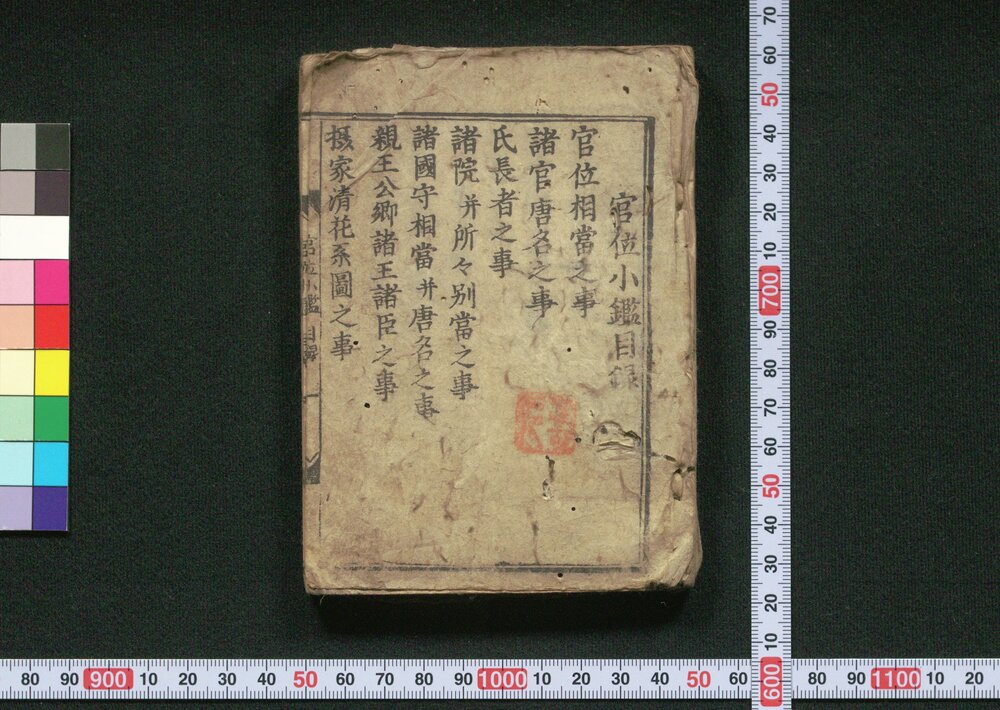 官位小鑑目録
官位相當之事
諸官唐名之事
氏長者之事
諸院并所々別當之事
諸國守相當并唐名之事
親王公卿諸王諸臣之事
摂家清花系圖之事
官位小鑑 目録
70
60
50
40
30
20
10
700
90
80
70
60
50
40
30
20
10
600
80 90 900 10 20 30 40 50 60 70 80 90 1000 10 20 30 40 50 60 80 90 1100 10 20